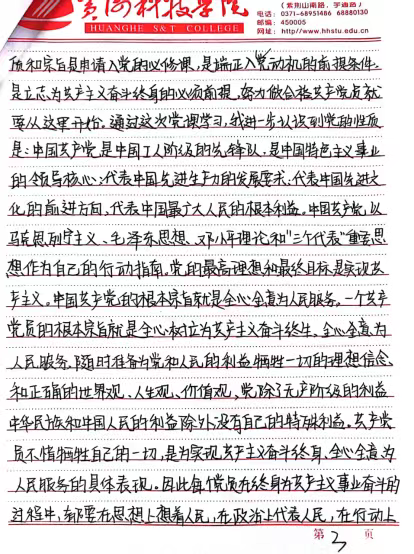 黄河科技学院
HUANGHE S&T COLLEGE
(紫荆山南路, 学通路)
电话: 0371-68951486 68880130
邮编: 450005
网址: http://www.hhstu.edu.cn
质和宗旨是申请入党的必修课,是端正入党动机的前提条件,
是立志为共产主义奋斗终身的必须前提,努力做合格共产党员就
要从这里开始。通过这次党课学习,我进一步认识到党的性质
是:中国共产党是中国工人阶级的先锋队,是中国特色主义事业
的领导核心:代表中国先进生产力的发展要求,代表中国先进文
化的前进方向,代表中国最广大人民的根本利益。中国共产党,以
马克思列宁主义、毛泽东思想、邓小平理论和"三个代表"重要思
想作为自己的行动指南。党的最高理想和最终目标是实现共
产主义。中国共产党的根本宗旨就是全心全意为人民服务。一个共产
党员的根本宗旨就是全心树立为共产主义奋斗终生、全心全意为
人民服务,随时准备为党和人民的利益牺牲一切的理想信念
和正确的世界观、人生观、价值观,党除了无产阶级的利益
中华民族和中国人民的利益除外没有自己的特殊利益。共产党
员不惜牺牲自己的一切,是为实现共产主义奋斗终身、全心全意为
人民服务的具体表现。因此每个党员在终身为共产主义事业奋斗的
过程中,都要在思想上想着人民,在政治上代表人民,在行动上
第 3 页